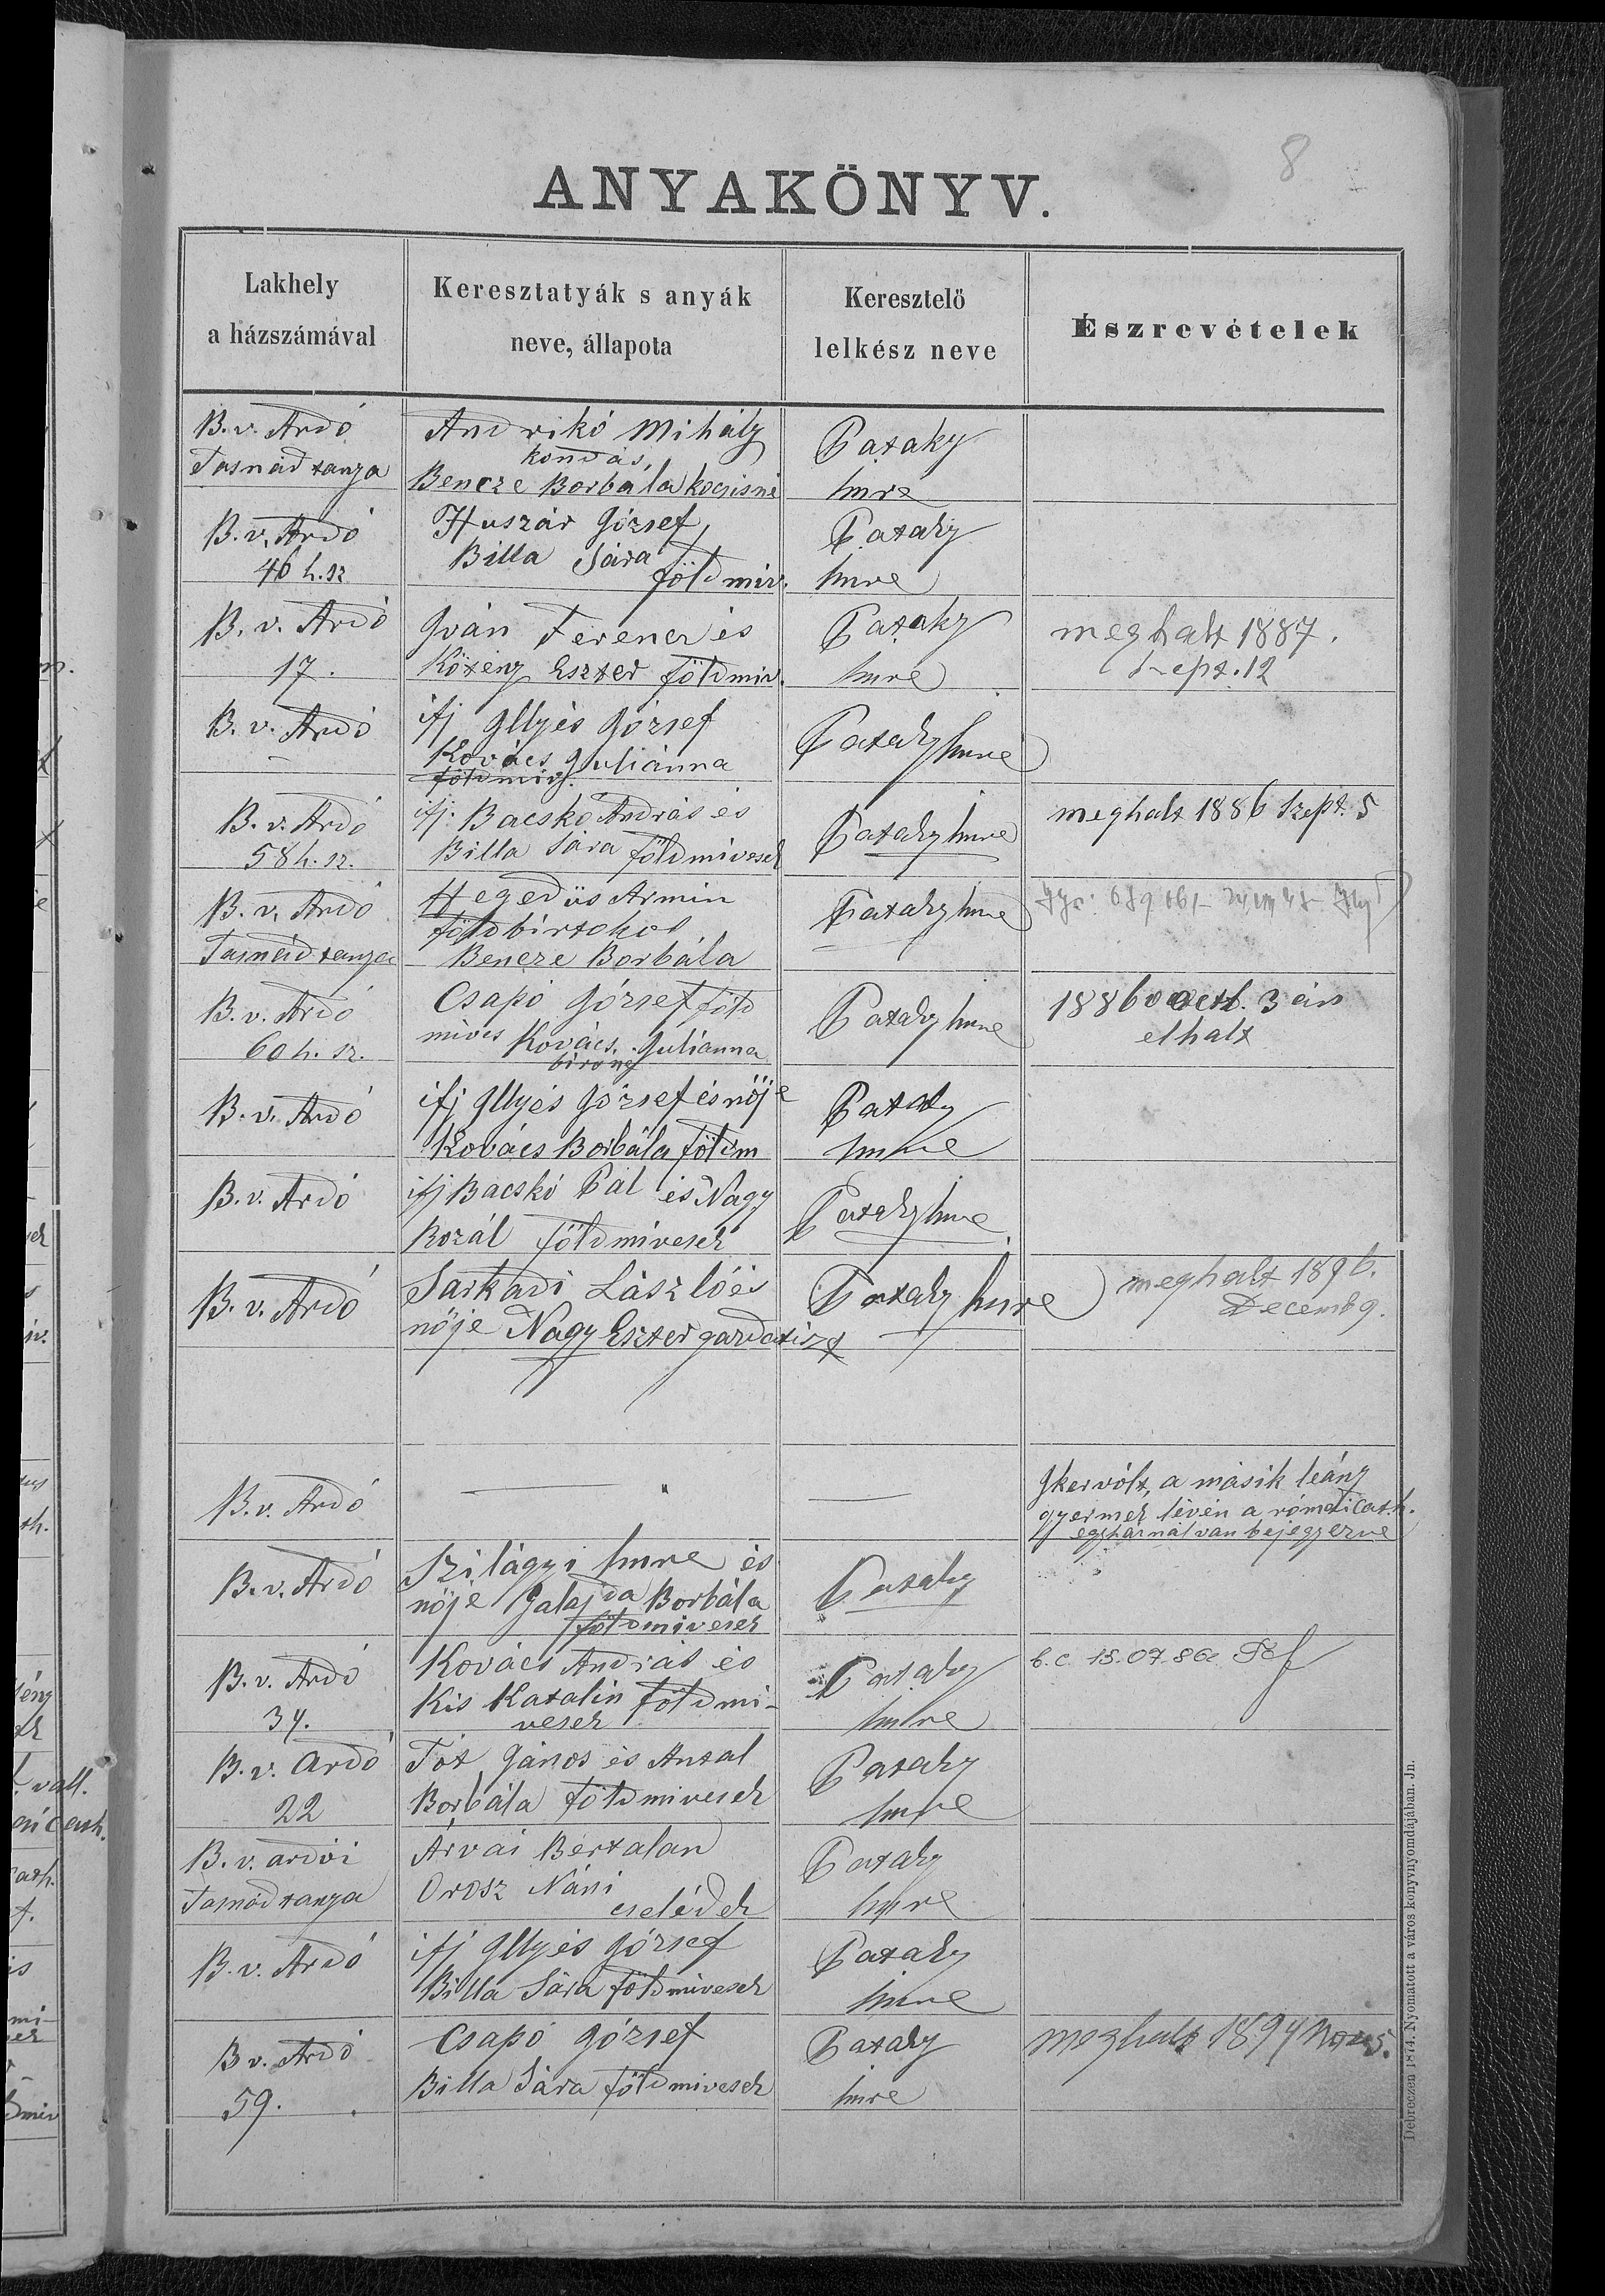 8
ANYAKÖNYV.
Lakhely
a házszámával
Keresztatyák s anyák
neve, állapota
Keresztelő
lelkész neve
Észrevételek
B. v. Ardó
Tasnád tanya
Andrikó Mihály
kondás,
Bencze Borbála kocsisné
Pataky
Imre
B. v. Ardó
46 h. sz
Huszár József,
Billa Sára
földmiv.
Pataky
Imre
B. v. Ardó
17.
Iván Ferencz és
Kötény Eszter földmiv.
Pataky
Imre
meghalt 1887.
Sept. 12
B. v. Ardó
ifj Illyés József
Kovács Juliánna
földmiv.
Pataky Imre
B. v. Ardó
58 h. sz.
ifj. Bacskó András és
Billa Sára földmivesek
Pataky Imre
meghalt 1886 Szept. 5
B. v. Ardó
Tasnád tanya
Hegedüs Armin
földbirtokos
Bencze Borbála
Pataky Imre
B. v. Ardó
60 h. sz.
Csapó József föld
mives Kovács Juliánna
biróné
Pataky Imre
1886 octb. 3 án
elhalt
B. v. Ardó
ifj Illyés József és nője
Kovács Borbála földm
Pataky
Imre
B. v. Ardó
ifj Bacskó Pál és Nagy
Rozál földmivesek
Pataky Imre
B. v. Ardó
Sarkadi László és
nője Nagy Eszter gazdatiszt
Pataky Imre
meghalt 1896.
Decemb 9.
B. v. Ardó
Iker vólt, a másik leány
gyermek lévén a római cath.
egyháznál van bejegyezve
B. v. Ardó
Szilágyi Imre és
nője Galajda Borbála
földmivesek
Pataky
B. v. Ardó
34.
Kovács András és
Kis Katalin földmi-
vesek
Pataky
Imre
b. c. 15.07.86
B. v. Ardó
22
Tót János és Antal
Borbála földmivesek
Pataky
Imre
B. v. ardói
Tasnád tanya
Árvai Bertalan
Orosz Náni
cselédek
Pataky
Imre
B. v. Ardó
ifj Illyés József
Billa Sára földmivesek
Pataky
Imre
B v. Ardó
59.
Csapó József
Billa Sára földmivesek
Pataky
Imre
meghalt 1894 Nov 5.
Debreczen 1874. Nyomatott a város könyvnyomdájában. Jn.